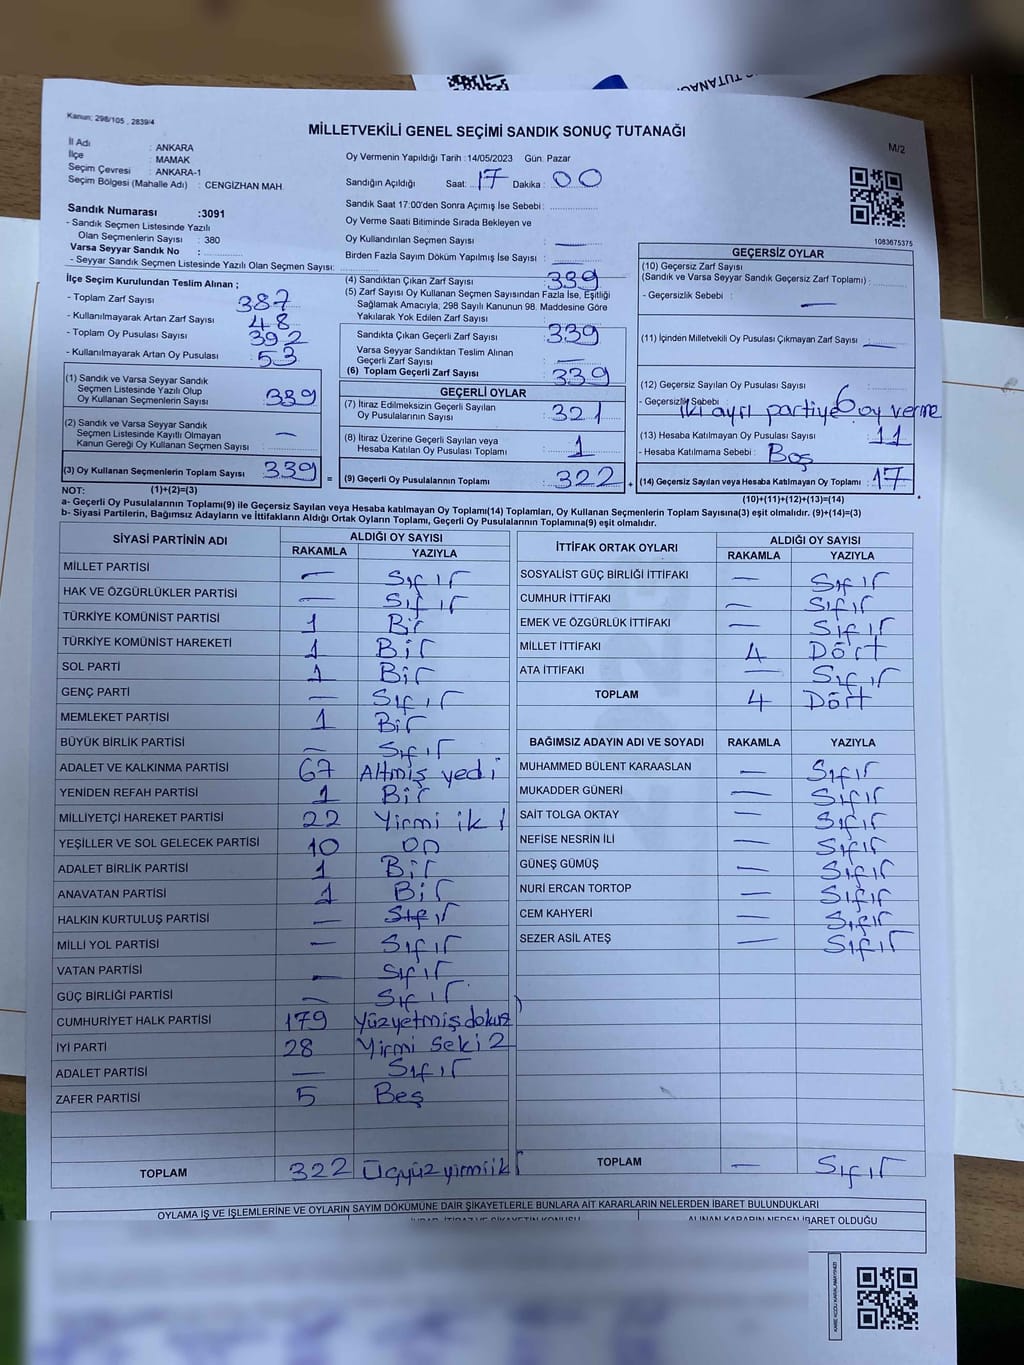 TUTANAĞ
Kanun; 298/105 , 2839/4
MİLLETVEKİLİ GENEL SEÇİMİ SANDIK SONUÇ TUTANAĞI
M/2
İl Adı : ANKARA
İlçe : MAMAK
Seçim Çevresi : ANKARA-1
Seçim Bölgesi (Mahalle Adı) : CENGİZHAN MAH.
Oy Vermenin Yapıldığı Tarih : 14/05/2023 Gün: Pazar
Sandığın Açıldığı Saat: 17 Dakika: 00
Sandık Saat 17:00'den Sonra Açımış İse Sebebi :
Oy Verme Saati Bitiminde Sırada Bekleyen ve
Oy Kullandırılan Seçmen Sayısı : —
Birden Fazla Sayım Döküm Yapılmış İse Sayısı : —
1083675375
Sandık Numarası :3091
- Sandık Seçmen Listesinde Yazılı
Olan Seçmenlerin Sayısı : 380
Varsa Seyyar Sandık No :
- Seyyar Sandık Seçmen Listesinde Yazılı Olan Seçmen Sayısı:
İlçe Seçim Kurulundan Teslim Alınan ;
- Toplam Zarf Sayısı : 387
- Kullanılmayarak Artan Zarf Sayısı : 48
- Toplam Oy Pusulası Sayısı : 392
- Kullanılmayarak Artan Oy Pusulası : 53
(1) Sandık ve Varsa Seyyar Sandık
Seçmen Listesinde Yazılı Olup
Oy Kullanan Seçmenlerin Sayısı : 339
(2) Sandık ve Varsa Seyyar Sandık
Seçmen Listesinde Kayıtlı Olmayan
Kanun Gereği Oy Kullanan Seçmen Sayısı : —
(3) Oy Kullanan Seçmenlerin Toplam Sayısı 339
(4) Sandıktan Çıkan Zarf Sayısı : 339
(5) Zarf Sayısı Oy Kullanan Seçmen Sayısından Fazla İse, Eşitliği
Sağlamak Amacıyla, 298 Sayılı Kanunun 98. Maddesine Göre
Yakılarak Yok Edilen Zarf Sayısı :
Sandıkta Çıkan Geçerli Zarf Sayısı : 339
Varsa Seyyar Sandıktan Teslim Alınan
Geçerli Zarf Sayısı : —
(6) Toplam Geçerli Zarf Sayısı : 339
GEÇERLİ OYLAR
(7) İtiraz Edilmeksizin Geçerli Sayılan
Oy Pusulalarının Sayısı : 321
(8) İtiraz Üzerine Geçerli Sayılan veya
Hesaba Katılan Oy Pusulası Toplamı : 1
= (9) Geçerli Oy Pusulalarının Toplamı : 322 +
GEÇERSİZ OYLAR
(10) Geçersiz Zarf Sayısı
(Sandık ve Varsa Seyyar Sandık Geçersiz Zarf Toplamı) :
- Geçersizlik Sebebi : —
(11) İçinden Milletvekili Oy Pusulası Çıkmayan Zarf Sayısı : —
(12) Geçersiz Sayılan Oy Pusulası Sayısı : 6
- Geçersizlik Sebebi : iki ayrı partiye oy verme
(13) Hesaba Katılmayan Oy Pusulası Sayısı : 11
- Hesaba Katılmama Sebebi : Boş
(14) Geçersiz Sayılan veya Hesaba Katılmayan Oy Toplamı : 17
NOT: (1)+(2)=(3)
(10)+(11)+(12)+(13)=(14)
a- Geçerli Oy Pusulalarının Toplamı(9) ile Geçersiz Sayılan veya Hesaba katılmayan Oy Toplamı(14) Toplamları, Oy Kullanan Seçmenlerin Toplam Sayısına(3) eşit olmalıdır. (9)+(14)=(3)
b- Siyasi Partilerin, Bağımsız Adayların ve İttifakların Aldığı Ortak Oyların Toplamı, Geçerli Oy Pusulalarının Toplamına(9) eşit olmalıdır.
SİYASİ PARTİNİN ADI ALDIĞI OY SAYISI
RAKAMLA YAZIYLA
MİLLET PARTİSİ — Sıfır
HAK VE ÖZGÜRLÜKLER PARTİSİ — Sıfır
TÜRKİYE KOMÜNİST PARTİSİ 1 Bir
TÜRKİYE KOMÜNİST HAREKETİ 1 Bir
SOL PARTİ 1 Bir
GENÇ PARTİ — Sıfır
MEMLEKET PARTİSİ 1 Bir
BÜYÜK BİRLİK PARTİSİ — Sıfır
ADALET VE KALKINMA PARTİSİ 67 Altmış yedi
YENİDEN REFAH PARTİSİ 1 Bir
MİLLİYETÇİ HAREKET PARTİSİ 22 Yirmi iki
YEŞİLLER VE SOL GELECEK PARTİSİ 10 On
ADALET BİRLİK PARTİSİ 1 Bir
ANAVATAN PARTİSİ 1 Bir
HALKIN KURTULUŞ PARTİSİ — Sıfır
MİLLİ YOL PARTİSİ — Sıfır
VATAN PARTİSİ — Sıfır
GÜÇ BİRLİĞİ PARTİSİ — Sıfır
CUMHURİYET HALK PARTİSİ 179 Yüzyetmişdokuz
İYİ PARTİ 28 Yirmi Sekiz
ADALET PARTİSİ — Sıfır
ZAFER PARTİSİ 5 Beş
TOPLAM 322 Üçyüzyirmiiki
İTTİFAK ORTAK OYLARI ALDIĞI OY SAYISI
RAKAMLA YAZIYLA
SOSYALİST GÜÇ BİRLİĞİ İTTİFAKI — Sıfır
CUMHUR İTTİFAKI — Sıfır
EMEK VE ÖZGÜRLÜK İTTİFAKI — Sıfır
MİLLET İTTİFAKI 4 Dört
ATA İTTİFAKI — Sıfır
TOPLAM 4 Dört
BAĞIMSIZ ADAYIN ADI VE SOYADI RAKAMLA YAZIYLA
MUHAMMED BÜLENT KARAASLAN — Sıfır
MUKADDER GÜNERİ — Sıfır
SAİT TOLGA OKTAY — Sıfır
NEFİSE NESRİN İLİ — Sıfır
GÜNEŞ GÜMÜŞ — Sıfır
NURİ ERCAN TORTOP — Sıfır
CEM KAHYERİ — Sıfır
SEZER ASİL ATEŞ — Sıfır
TOPLAM — Sıfır
OYLAMA İŞ VE İŞLEMLERİNE VE OYLARIN SAYIM DÖKÜMÜNE DAİR ŞİKAYETLERLE BUNLARA AİT KARARLARIN NELERDEN İBARET BULUNDUKLARI
İHBAR, İTİRAZ VE ŞİKAYETİN KONUSU ALINAN KARARIN NEDEN İBARET OLDUĞU
KARE KODU KARALAMAYINIZ!